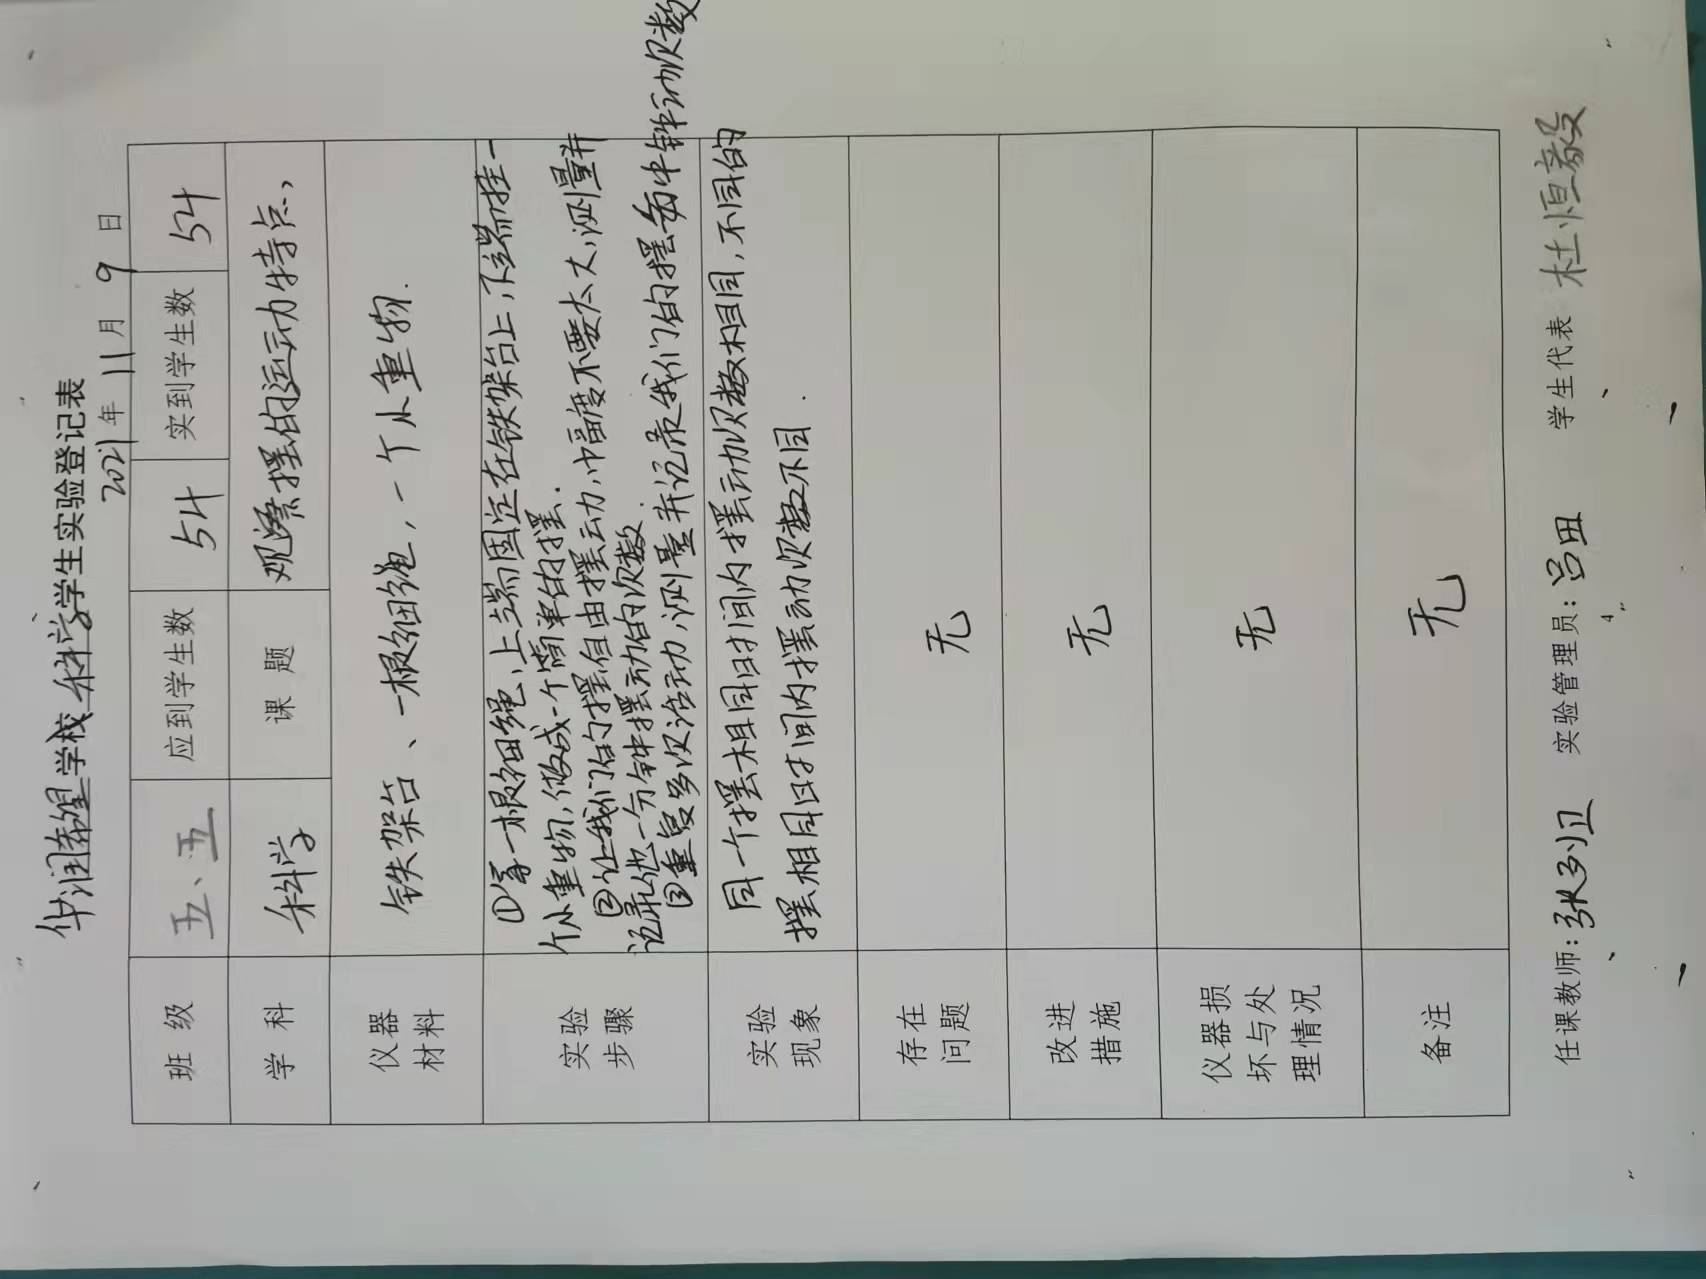 华润希望学校科学学生实验登记表
2021年 11月 9日
班 级 五、五 应到学生数 54 实到学生数 54
学 科 科学 课 题 观察摆的运动特点,
仪器
材料
铁架台、一根细绳,一个小重物.
实验
步骤
①拿一根细绳,上端固定在铁架台上,下端挂一
个小重物,做成一个简单的摆.
②让我们的摆自由摆动,幅度不要太大,测量并
记录他一分钟摆动的次数.
③重复多次活动,测量并记录我们的摆每中钟动次数
实验
现象
同一个摆相同时间内摆动次数相同,不同的
摆相同时间内摆动次数不同.
存在
问题
无
改进
措施
无
仪器损
坏与处
理情况
无
备注
无
任课教师: 张 实验管理员: 吕田 学生代表 杜恒毅